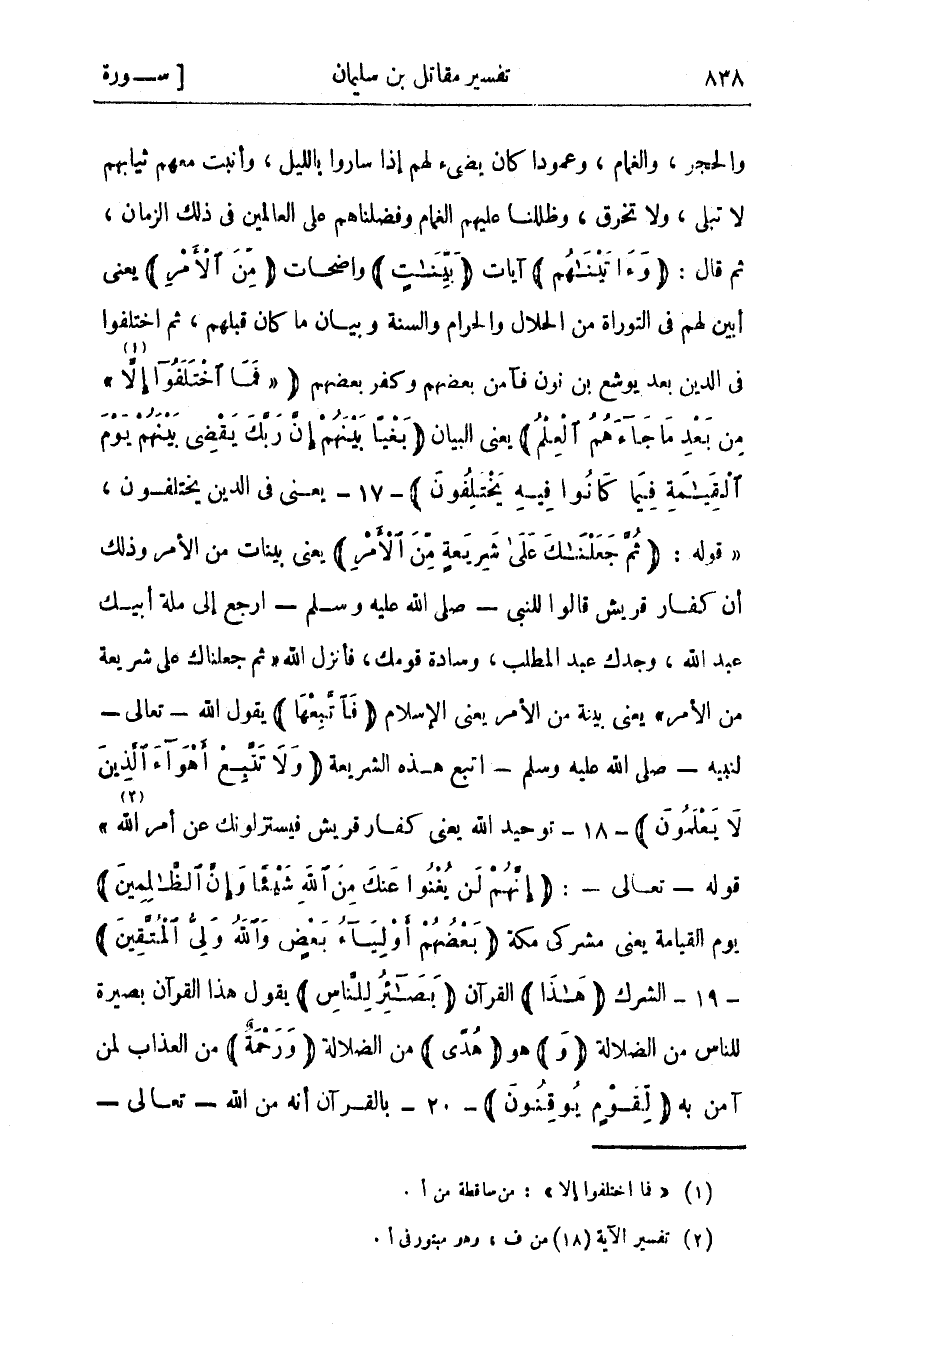 ٨٣٨ تفسير مقاتل بن سليمان [ ســـورة
والحجر ، والغمام ، وعمودا كان يضىء لهم إذا ساروا بالليل ، وأنبت معهم ثيابهم
لا تبلى ، ولا تخرق ، وظللنا عليهم الغمام وفضلناهم على العالمين فى ذلك الزمان ،
ثم قال : ( وَءَاتَيْنَـٰهُم ) آيات ( بَيِّنَـٰتٍ ) واضحات ( مِّنَ ٱلْأَمْرِ ) يعنى
أبين لهم فى التوراة من الحلال والحرام والسنة وبيان ما كان قبلهم ، ثم اختلفوا
فى الدين بعد يوشع بن نون فآمن بعضهم وكفر بعضهم ( « فَمَا ٱخْتَلَفُوٓا۟ إِلَّا » (١)
مِن بَعْدِ مَا جَآءَهُمُ ٱلْعِلْمُ ) يعنى البيان ( بَغْيًا بَيْنَهُمْ إِنَّ رَبَّكَ يَقْضِى بَيْنَهُمْ يَوْمَ
ٱلْقِيَـٰمَةِ فِيمَا كَانُوا۟ فِيهِ يَخْتَلِفُونَ ) - ١٧ - يعنى فى الدين يختلفون ،
« قوله : ( ثُمَّ جَعَلْنَـٰكَ عَلَىٰ شَرِيعَةٍ مِّنَ ٱلْأَمْرِ ) يعنى بينات من الأمر وذلك
أن كفار قريش قالوا للنبى — صلى الله عليه وسلم — ارجع إلى ملة أبيك
عبد الله ، وجدك عبد المطلب ، وسادة قومك ، فأنزل الله « ثم جعلناك على شريعة
من الأمر » يعنى بينة من الأمر يعنى الإسلام ( فَٱتَّبِعْهَا ) يقول الله — تعالى —
لنبيه — صلى الله عليه وسلم — اتبع هذه الشريعة ( وَلَا تَتَّبِعْ أَهْوَآءَ ٱلَّذِينَ
لَا يَعْلَمُونَ ) - ١٨ - توحيد الله يعنى كفار قريش فيستزلونك عن أمر الله » (٢)
قوله — تعالى — : ( إِنَّهُمْ لَن يُغْنُوا۟ عَنكَ مِنَ ٱللَّهِ شَيْـًٔا وَإِنَّ ٱلظَّـٰلِمِينَ )
يوم القيامة يعنى مشركى مكة ( بَعْضُهُمْ أَوْلِيَآءُ بَعْضٍ وَٱللَّهُ وَلِىُّ ٱلْمُتَّقِينَ )
- ١٩ - الشرك ( هَـٰذَا ) القرآن ( بَصَـٰٓئِرُ لِلنَّاسِ ) يقول هذا القرآن بصيرة
للناس من الضلالة ( وَ ) هو ( هُدًى ) من الضلالة ( وَرَحْمَةٌ ) من العذاب لمن
آمن به ( لِّقَوْمٍ يُوقِنُونَ ) - ٢٠ - بالقرآن أنه من الله — تعالى —
(١) « فما اختلفوا إلا » : من ساقطة من أ .
(٢) تفسير الآية (١٨) من ف ، وهو مبتور فى أ .